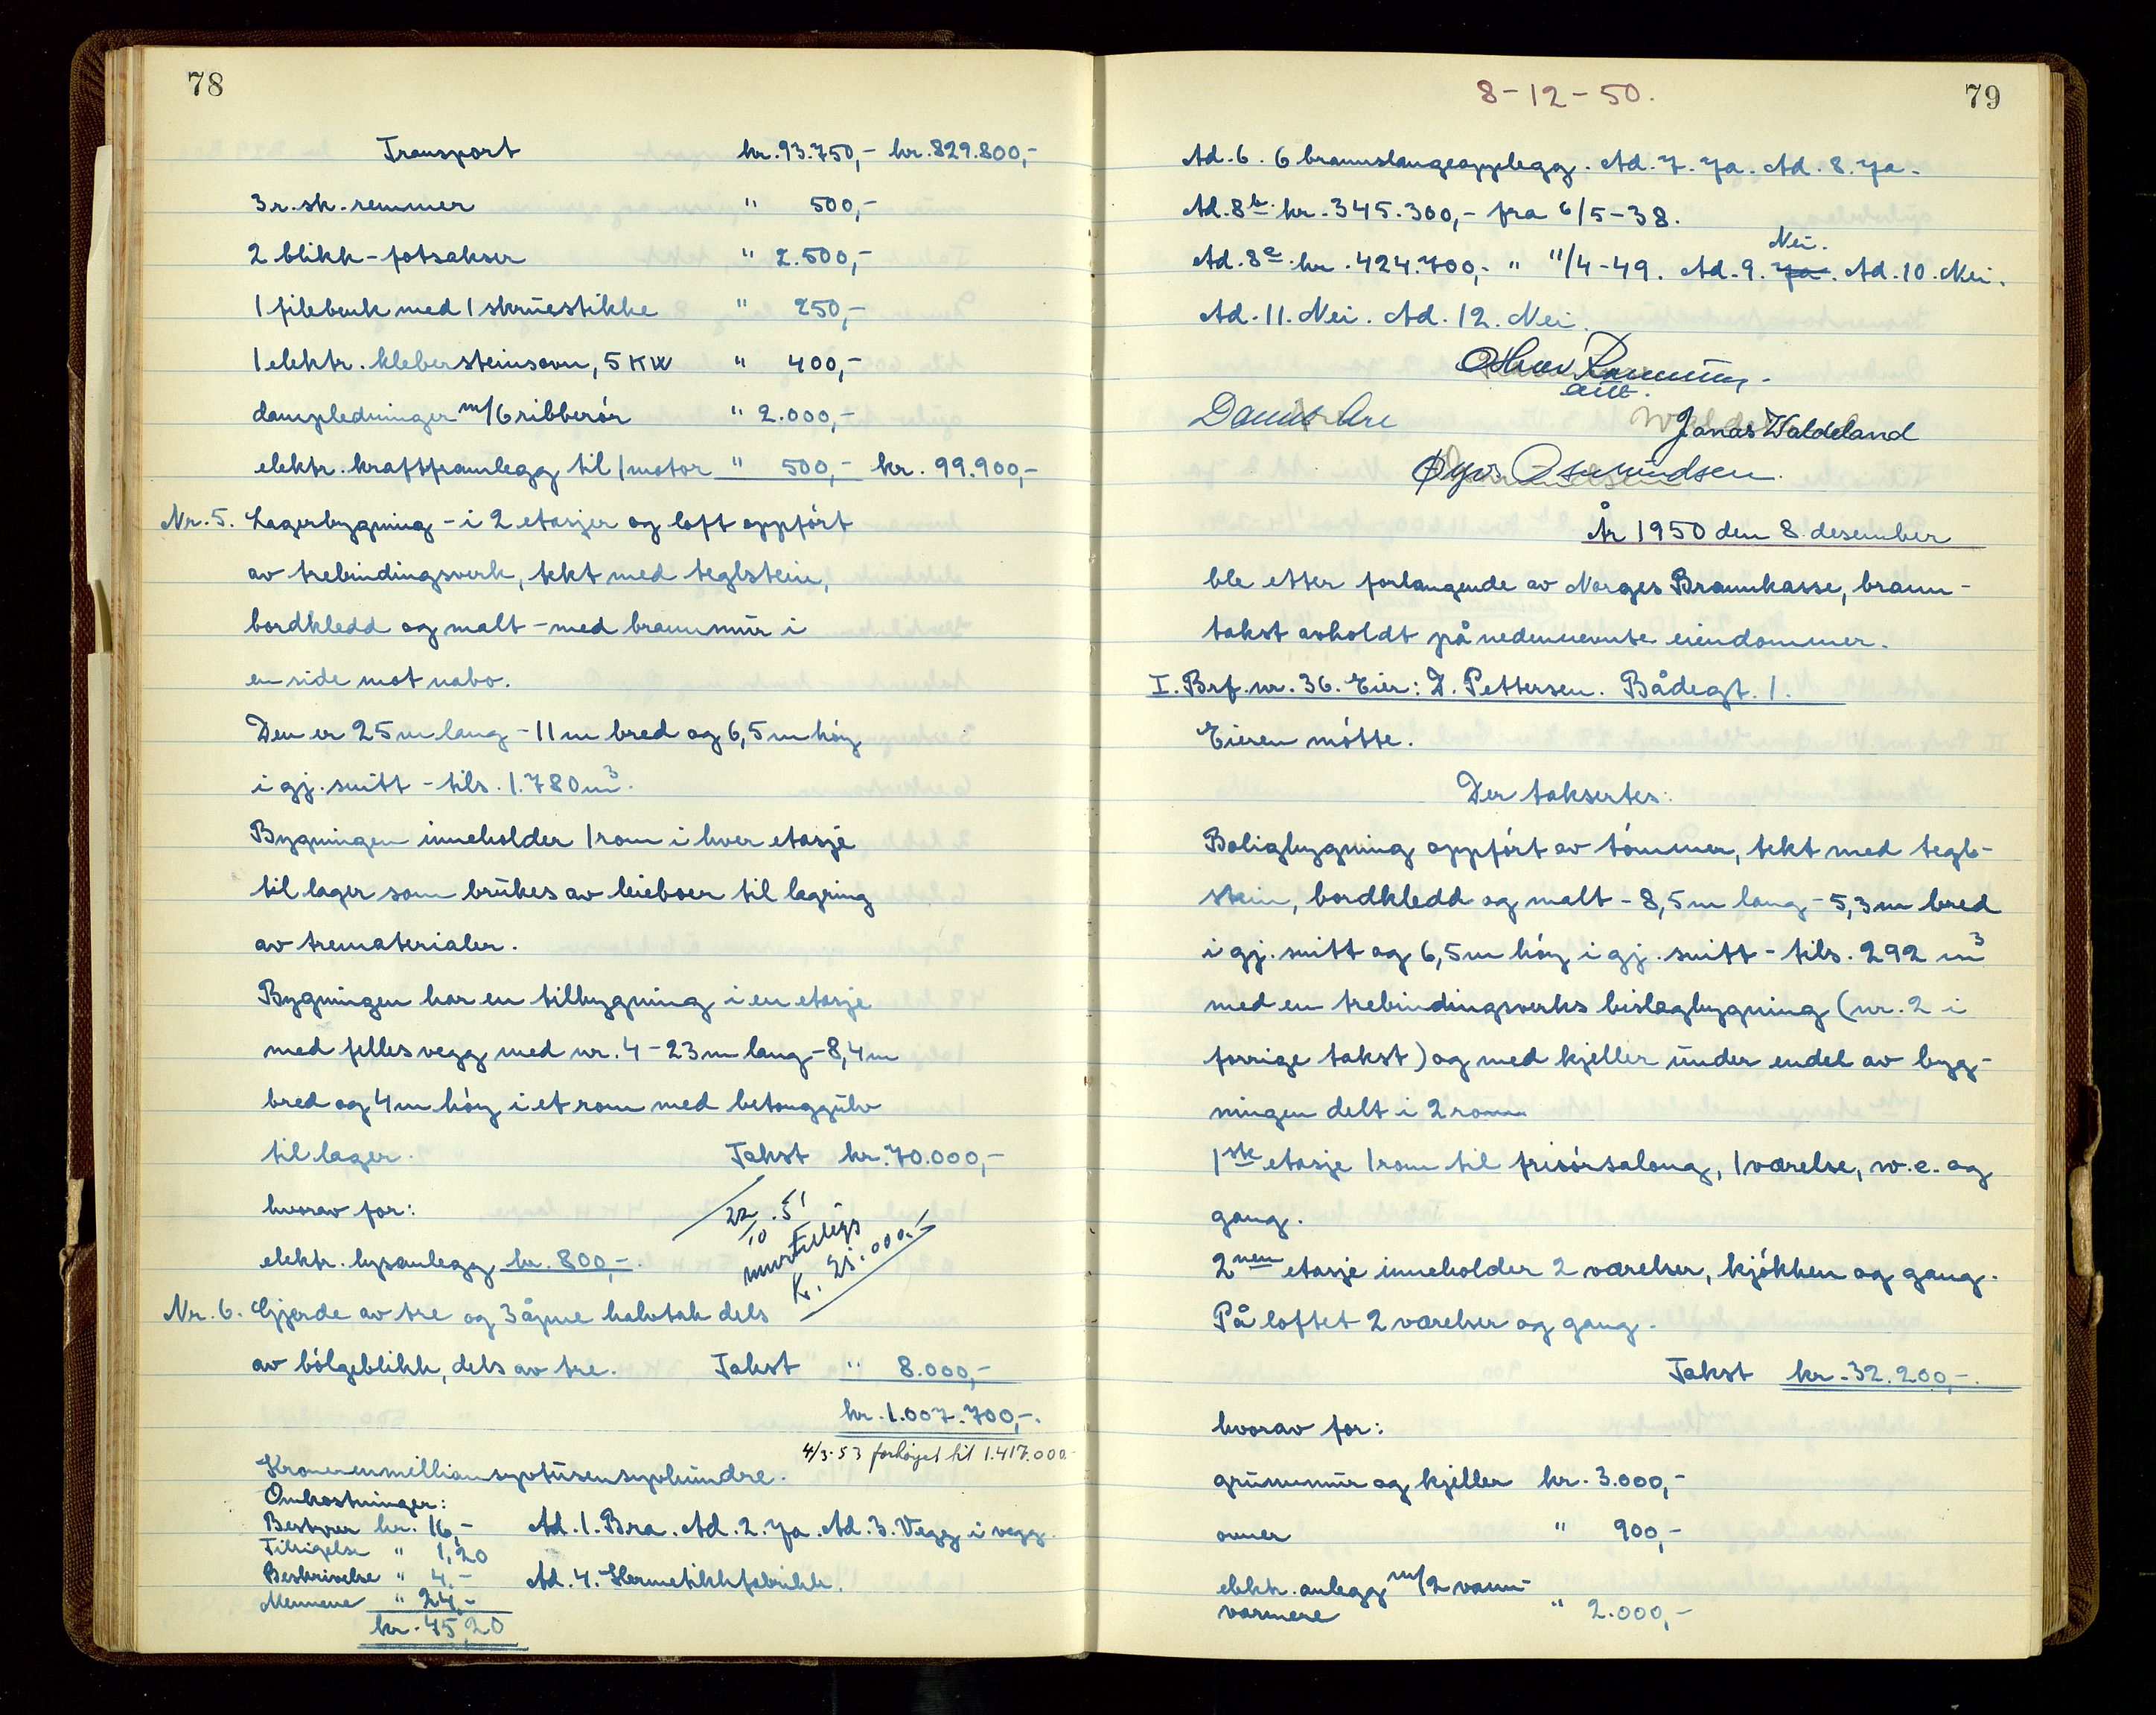 78
Transport kr. 93.750,- kr. 829.800,-
3 r. sk. remmer " 500,-
2 blikk-fotsakser " 2.500,-
1 filebenk med 1 skruestikke " 250,-
1 elektr. klebersteinsovn, 5 KW " 400,-
dampledninger m/6 ribberör " 2.000,-
elektr. kraftframlegg til 1 motor " 500,- kr. 99.900,-
Nr. 5. Lagerbygning - i 2 etasjer og loft oppfört
av trebindingsverk, tekt med teglstein,
bordkledd og malt - med brannmur i
en side mot nabo.
Den er 25 m lang - 11 m bred og 6,5 m höy
i gj. snitt - tils. 1.780 m³.
Bygningen inneholder 1 rom i hver etasje
til lager som brukes av leieboer til lagring
av trematerialer.
Bygningen har en tilbygning i en etasje
med felles vegg med nr. 4 - 23 m lang - 8,4 m
bred og 4 m höy i et rom med betonggulv
til lager. Takst kr. 70.000,-
hvorav for:
22/10. 51
elektr. lysanlegg kr. 800,-.
Kr. 25.000.-
Nr. 6. Gjerde av tre og 3 åpne halvtak dels
av bölgeblikk, dels av tre. Takst " 8.000,-
kr. 1.007.700,-.
4/3-53 forhöyet til 1.417.000
Kronerenmillionsyvtusensyvhundre.
Omkostninger:
Bestyrer kr. 16,- Ad. 1. Bra. Ad. 2. Ja. Ad. 3. Vegg i vegg.
Tilsigelse " 1,20
Beskrivelse " 4.- Ad. 4. Hermetikkfabrikk.
Mennene " 24,-
kr. 45,20
8-12-50.
79
Ad. 6. 6 brannslangeopplegg. Ad. 7. Ja. Ad. 8. Ja.
Ad. 8b. kr. 345.300,- fra 6/5-38.
Nei.
Ad. 8c. kr. 424.700,- " 11/4-49. Ad. 9. Ja. Ad. 10. Nei.
Ad. 11. Nei. Ad. 12. Nei.
Jonas Waldeland
År 1950 den 8. desember
ble etter forlangende av Norges Brannkasse, brann-
takst avholdt på nedennevnte eiendommer.
I. Brf. nr. 36. Eier: D. Pettersen. Bådegt. 1.
Eieren mötte.
Der taksertes:
Boligbygning oppfört av tömmer, tekt med tegl-
stein, bordkledd og malt - 8,5 m lang - 5,3 m bred
i gj. snitt og 6,5 m höy i gj. snitt - tils. 292 m³
med en trebindingsverks bislagbygning (nr. 2 i
forrige takst) og med kjeller under endel av byg-
ningen delt i 2 rom.
1ste etasje 1 rom til frisörsalong, 1 værelse, w.c. og
gang.
2nen etasje inneholder 2 værelser, kjökken og gang.
På loftet 2 værelser og gang.
Takst kr. 32.200,-.
hvorav for:
grunnmur og kjeller kr. 3.000,-
ovner " 900,-
elektr. anlegg m/2 vann-
varmere " 2.000,-